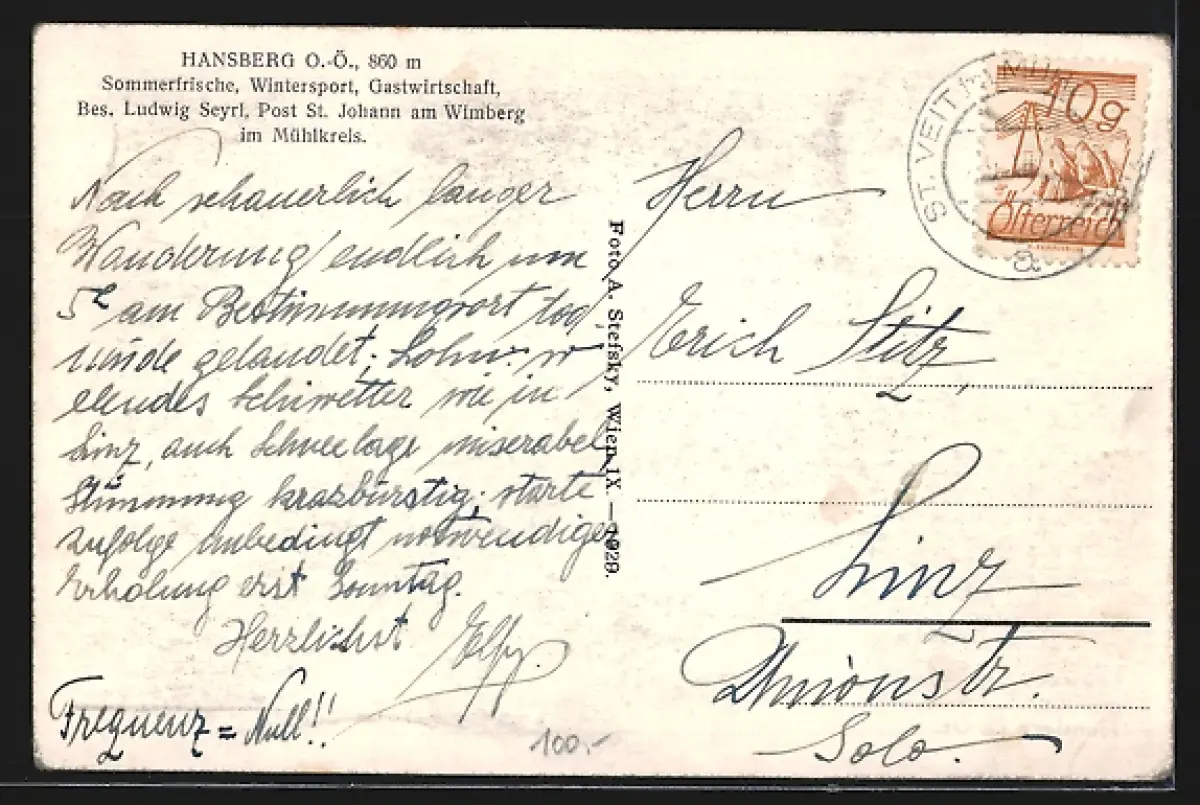 HANSBERG O.-Ö., 860 m
Sommerfrische, Wintersport, Gastwirtschaft,
Bes. Ludwig Seyrl, Post St. Johann am Wimberg
im Mühlkreis.
Nach schauerlich langer
Wanderung endlich um
5h am Bestimmungsort tod
müde gelandet; Lohn:
elendes Schiwetter wie in
Linz, auch Schneelage miserabel,
Stimmung krazbürstig; starte
zufolge unbedingt notwendiger
Erholung erst Sonntag.
Herzlichst Elfy.
Frequenz = Null!!
100,-
Foto A. Stefsky, Wien IX. — 1929.
ST. VEIT IM MÜH
a
10g
Österreich
Herrn
Erich Stitz,
Linz
Unionstr.
Solo